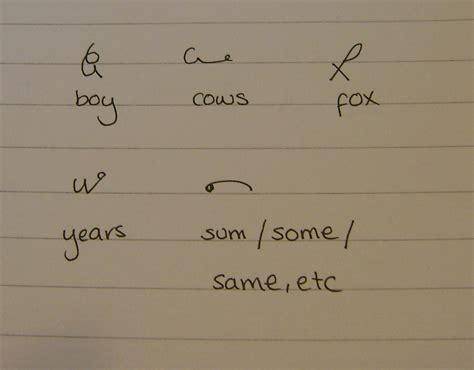 boy cows fox
years sum/some/
same, etc